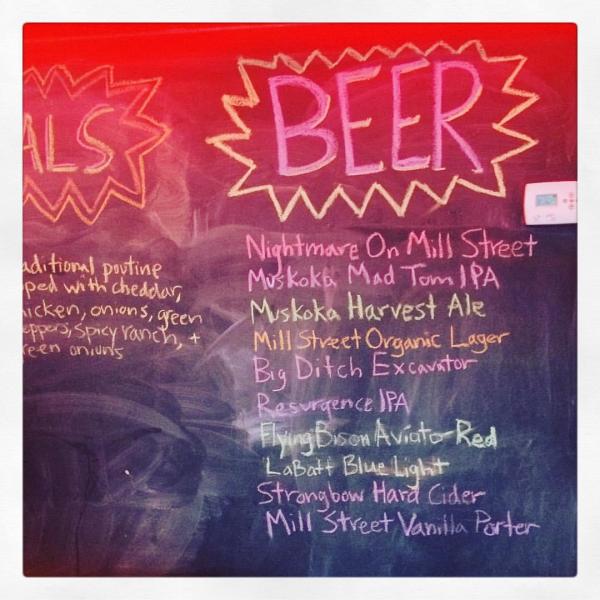 ALS
aditional poutine
ped with cheddar,
hicken, onions, green
eppers, spicy ranch, +
reen onions
BEER
Nightmare On Mill Street
Muskoka Mad Tom IPA
Muskoka Harvest Ale
Mill Street Organic Lager
Big Ditch Excavator
Resurgence IPA
Flying Bison Aviator Red
LaBatt Blue Light
Strongbow Hard Cider
Mill Street Vanilla Porter